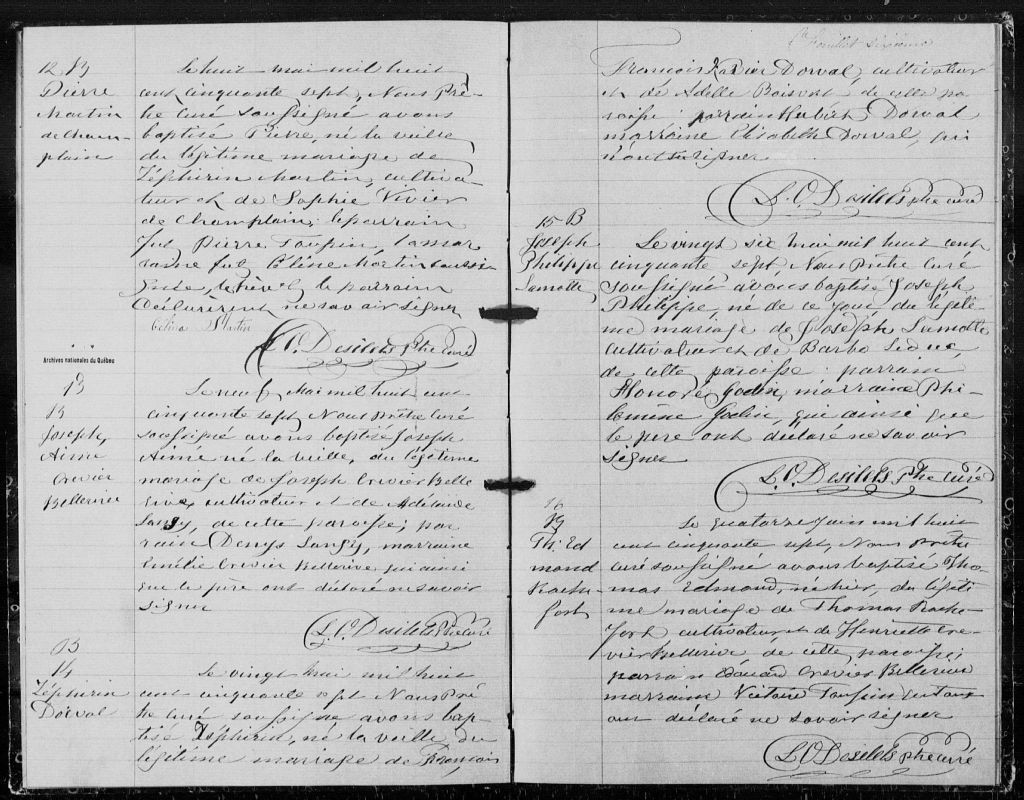 12 B
Pierre
Martin
de Cham-
plain
Le huit mai mil huit
cent cinquante sept, Nous Prê-
tre curé soussigné avons
baptisé Pierre, né la veille
du légitime mariage de
Zéphirin Martin, cultiva-
teur et de Sophie Vivier
de Champlain; le parrain
fut Pierre Toupin, la mar
raine fut Céline Martin soussi
gnée, le père, le parrain
déclarèrent ne savoir signer
Célina Martin
L. O. Desilets Ptre curé
Archives nationales du Québec
13
B
Joseph
Aimé
Crevier
Bellerive
Le neuf Mai mil huit cent
cinquante sept Nous prêtre curé
soussigné avons baptisé Joseph
Aimé né la veille, du légitime
mariage de Joseph Crevier Belle
rive, cultivateur et de Adélaide
de cette paroisse; par
rain Denys marraine
Emélie Crevier Bellerive, qui ainsi
que le père ont déclaré ne savoir
signer
L. O. Desilets Ptre curé
B
14
Zéphirin
Dorval
Le vingt mai mil huit
cent cinquante sept Nous Prê
tre curé soussigné avons bap-
tisé Zéphirin, né la veille du
légitime mariage de François
feuillet sixième
François Xavier Dorval, cultivateur
et de Adelle Boisvert de cette pa
roisse, parrain Hubert Dorval
marraine Elisabeth Dorval, qui
n'ont su signer
L. O. Desilets ptre curé
15 B
Joseph
Philippe
Lamotte
Le vingt six mai mil huit cent
cinquante sept, Nous Prêtre curé
soussigné avons baptisé Joseph
Philippe, né de ce jour du légiti-
me mariage de Joseph Lamotte
cultivateur et de Barbe
de cette paroisse: parrain
Honoré Godin, marraine Phi-
lomène Godin, qui ainsi que
le père ont déclaré ne savoir
signer
L. O. Desilets Ptre curé
16
B
Th. Ed
mond
Roche
fort
Le quatorze juin mil huit
cent cinquante sept, Nous Prêtre
curé soussigné avons baptisé Tho-
mas Edmond, né hier, du légiti
me mariage de Thomas Roche
fort cultivateur et de Henriette Cre-
vier Bellerive de cette paroisse;
parrain Edouard Crevier Bellerive
marraine Victoire Toupin
ont déclaré ne savoir signer
L. O. Desilets ptre curé